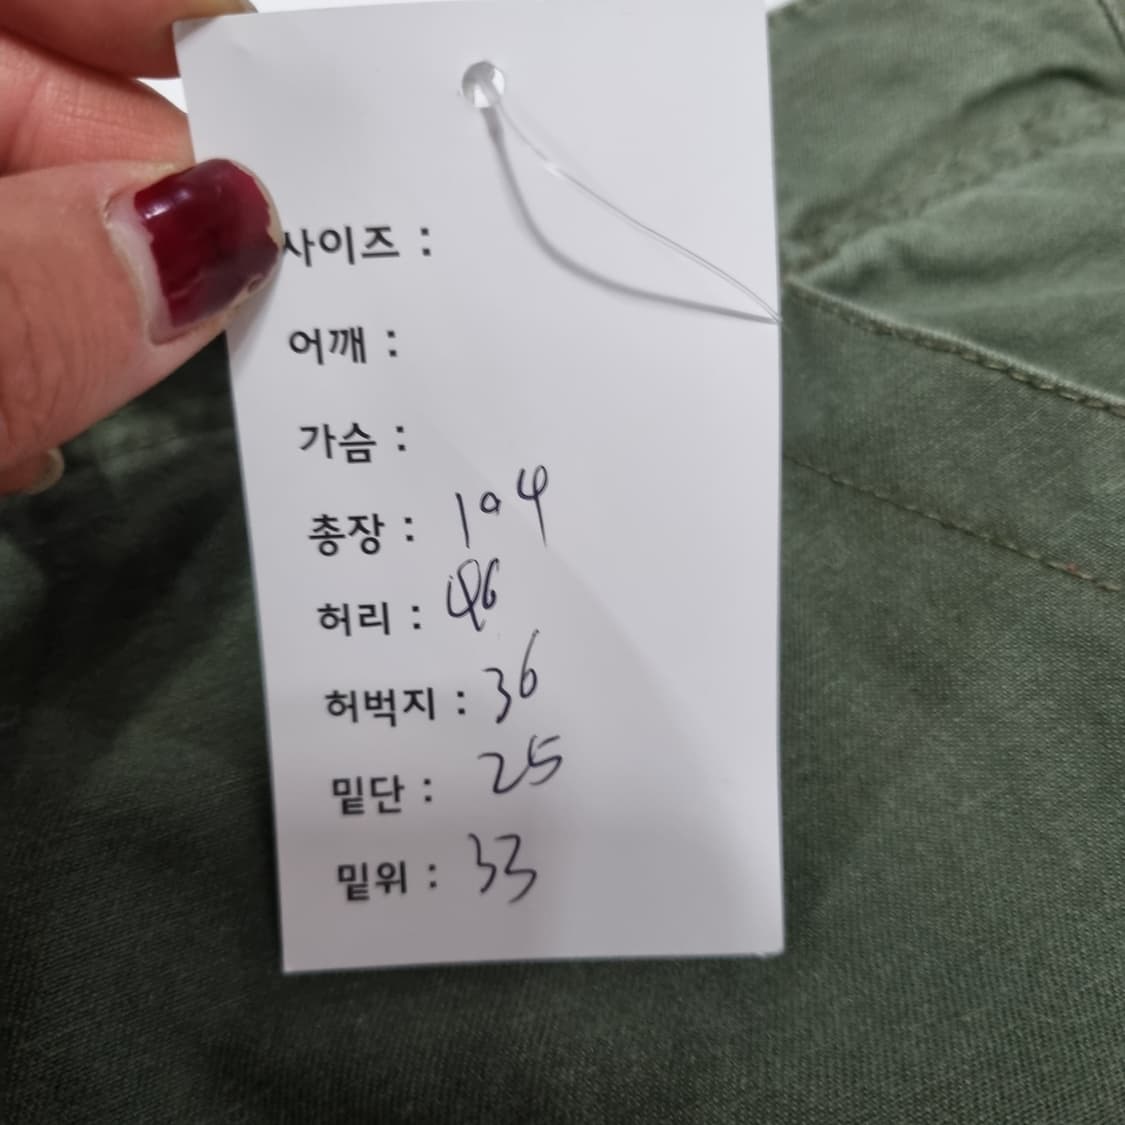 사이즈 :
어깨 :
가슴 :
총장 : 104
허리 : 46
허벅지 : 36
밑단 : 25
밑위 : 33